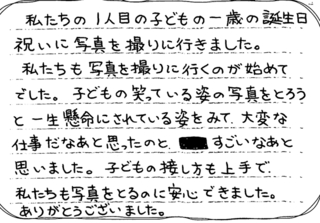 私たちの1人目の子どもの一歳の誕生日
祝いに写真を撮りに行きました。
私たちも写真を撮りに行くのが始めて
でした。子どもの笑っている姿の写真をとろう
と一生懸命にされている姿をみて、大変な
仕事だなあと思ったのと、すごいなあと
思いました。子どもの接し方も上手で、
私たちも写真をとるのに安心できました。
ありがとうございました。